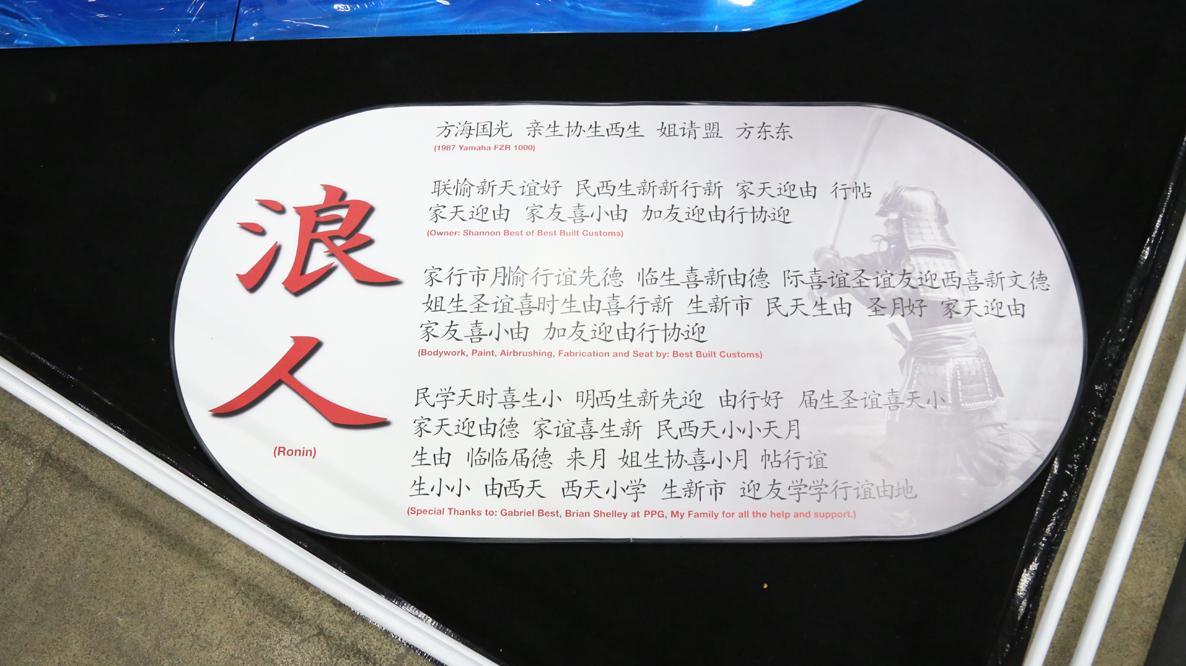 浪人
(Ronin)
方海国光 亲生协生西生 姐请盟 方东东
(1987 Yamaha FZR 1000)
联愉新天谊好 民西生新新行新 家天迎由 行帖
家天迎由 家友喜小由 加友迎由行协迎
(Owner: Shannon Best of Best Built Customs)
家行市月愉行谊先德 临生喜新由德 际喜谊圣谊友迎西喜新文德
姐生圣谊喜时生由喜行新 生新市 民天生由 圣月好 家天迎由
家友喜小由 加友迎由行协迎
(Bodywork, Paint, Airbrushing, Fabrication and Seat by: Best Built Customs)
民学天时喜生小 明西生新先迎 由行好 届生圣谊喜天小
家天迎由德 家谊喜生新 民西天小小天月
生由 临临届德 来月 姐生协喜小月 帖行谊
生小小 由西天 西天小学 生新市 迎友学学行谊由地
(Special Thanks to: Gabriel Best, Brian Shelley at PPG, My Family for all the help and support.)